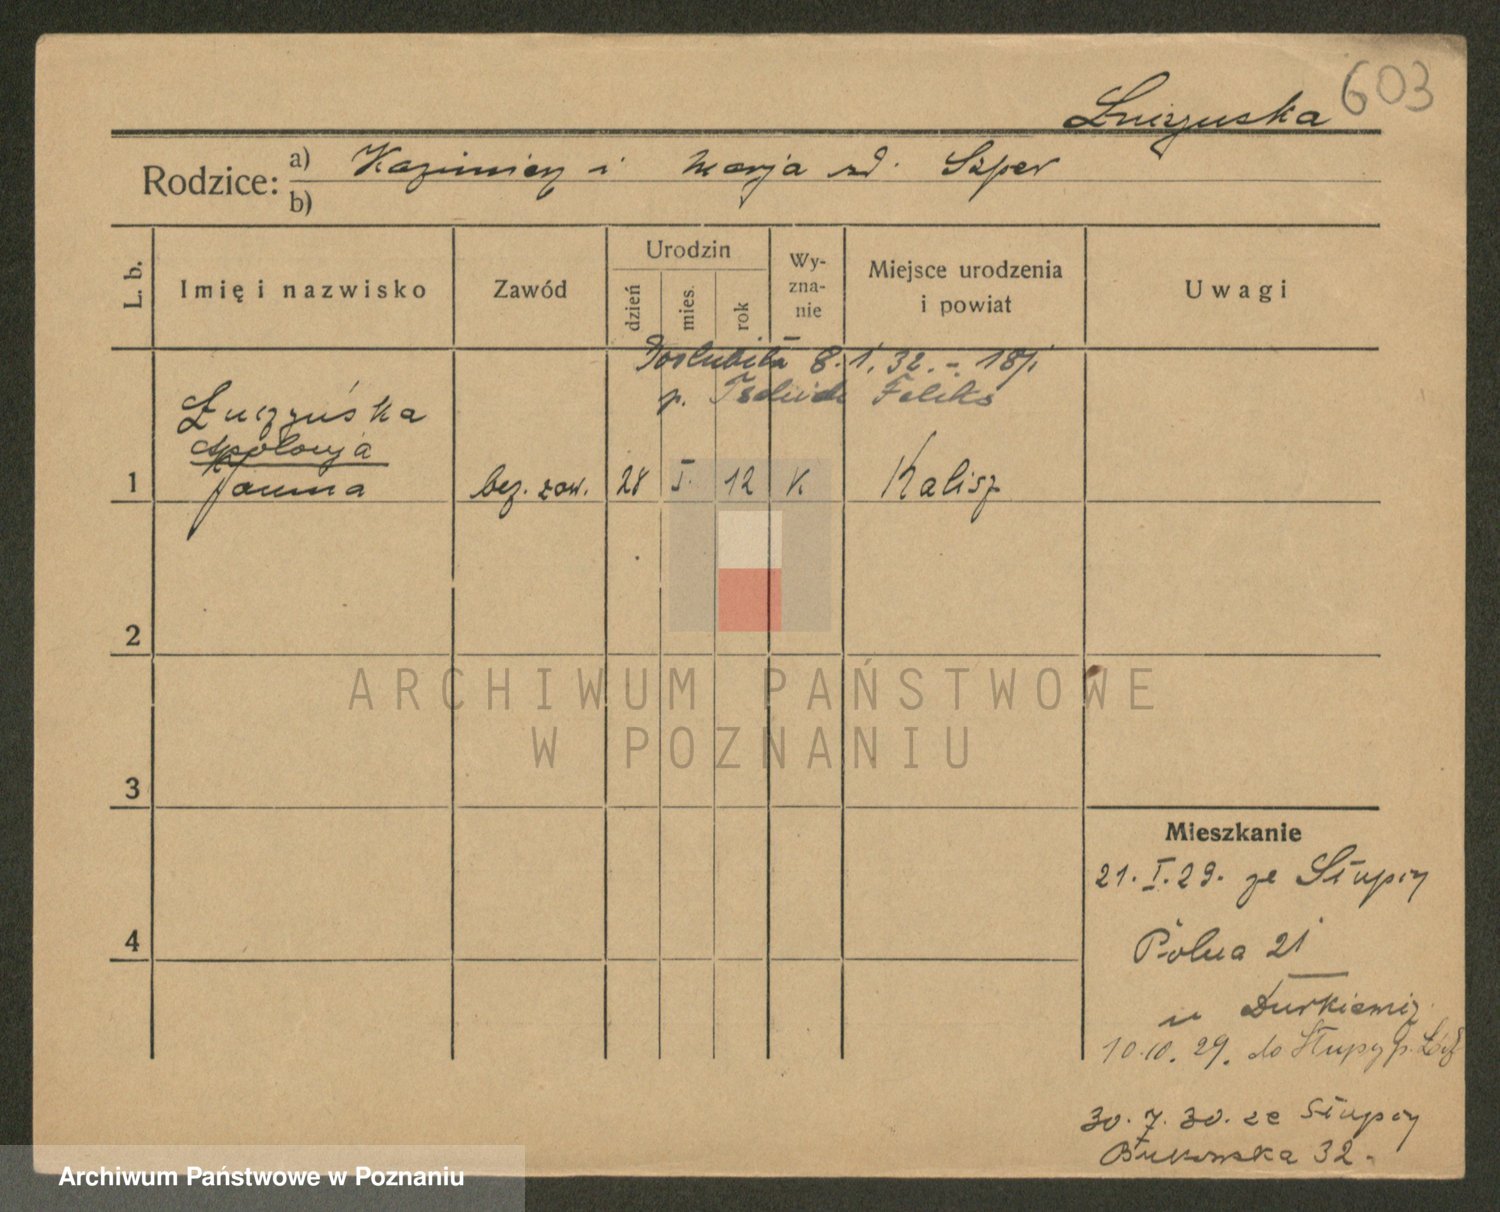 603
Łuczyńska
Rodzice: a) Kazimierz i Marja zd. Szper
b)
L. b.
Imię i nazwisko
Zawód
Urodzin
dzień
mies.
rok
Wy-
zna-
nie
Miejsce urodzenia
i powiat
Uwagi
Poślubiła 8.1.32. - 18/i
p. Feliks
Łuczyńska
Apolonja
1 Janina bez. zaw. 28 I. 12 K Kalisz
2
3
4
ARCHIWUM PAŃSTWOWE
W POZNANIU
Mieszkanie
21.I.29. ze Słupcy
Polna 21
u Durkiewicz
10.10.29. do Słupcy p.
30.7.30. ze Słupcy
Bukowska 32.
Archiwum Państwowe w Poznaniu